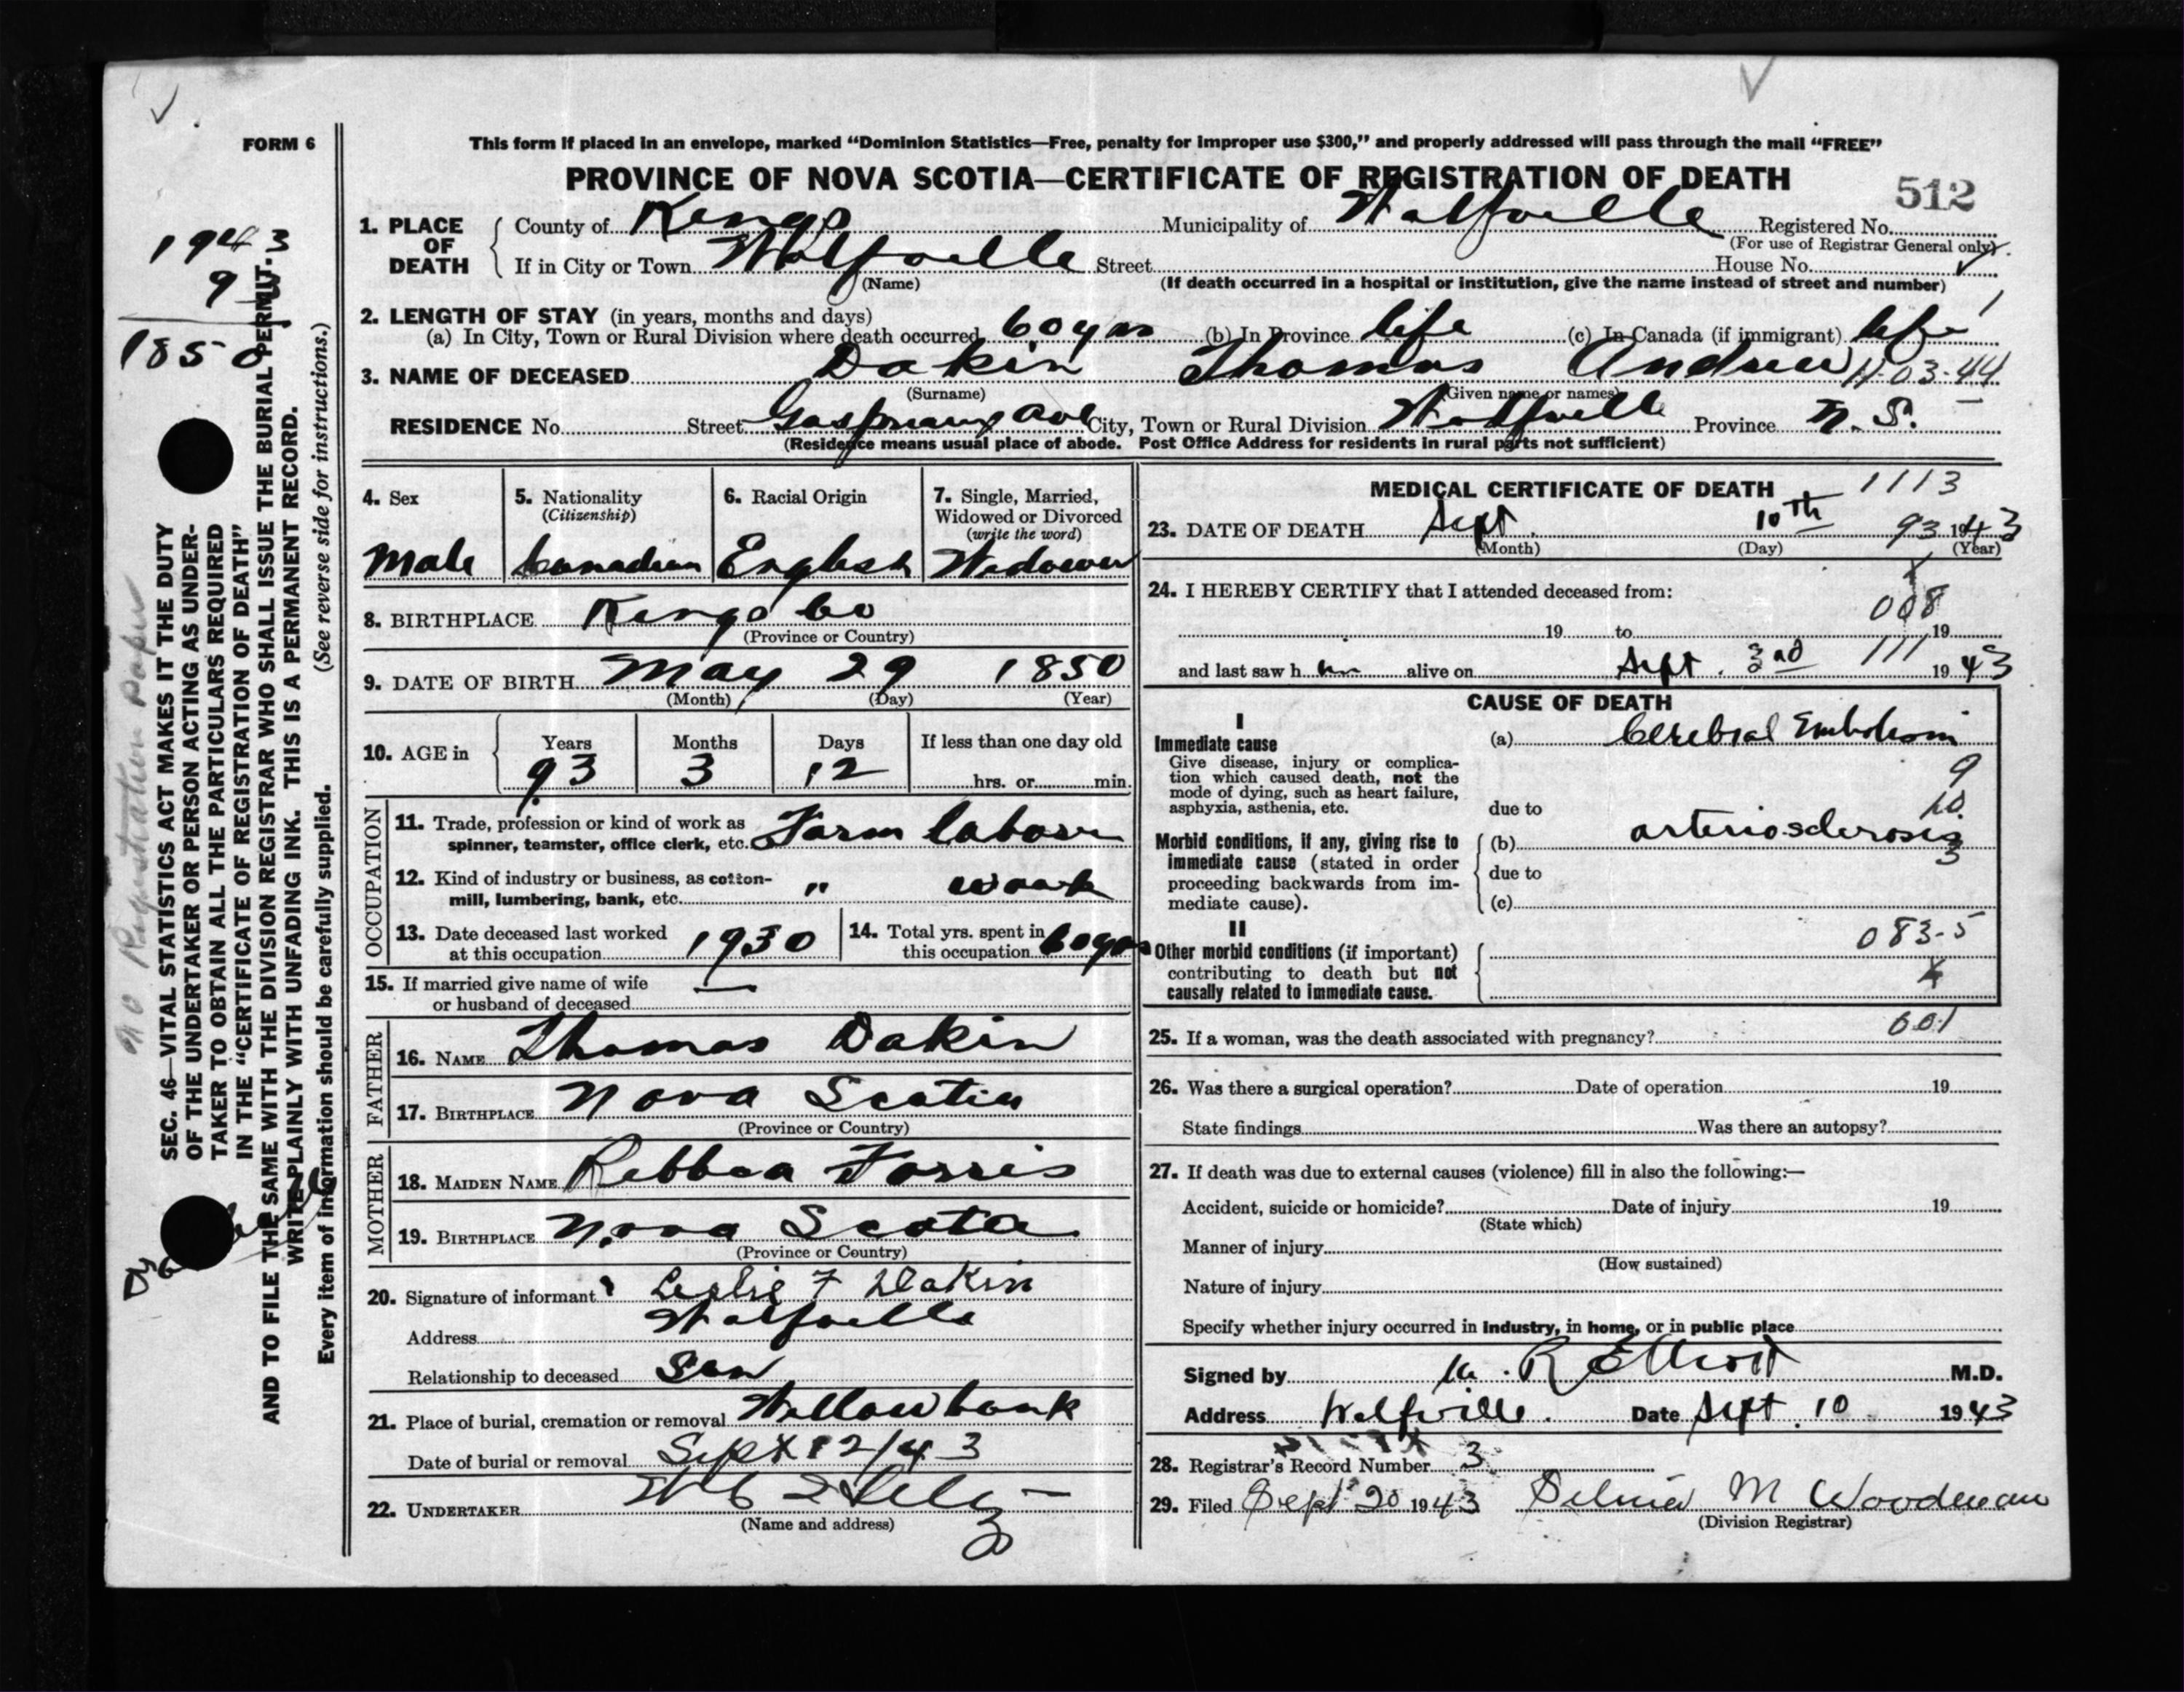 FORM 6
This form if placed in an envelope, marked “Dominion Statistics—Free, penalty for improper use $300,” and properly addressed will pass through the mail “FREE”
PROVINCE OF NOVA SCOTIA—CERTIFICATE OF REGISTRATION OF DEATH
512
1. PLACE OF DEATH
County of Kings Municipality of Wolfville Registered No.
(For use of Registrar General only)
If in City or Town Wolfville Street House No.
(Name) (If death occurred in a hospital or institution, give the name instead of street and number)
2. LENGTH OF STAY (in years, months and days)
(a) In City, Town or Rural Division where death occurred 60 yrs (b) In Province life (c) In Canada (if immigrant) life
3. NAME OF DECEASED Dakin Thomas Andrew 11-03-44
(Surname) (Given name or names)
RESIDENCE No. Street Gaspreaux Ave City, Town or Rural Division Wolfville Province N. S.
(Residence means usual place of abode. Post Office Address for residents in rural parts not sufficient)
4. Sex Male
5. Nationality (Citizenship) Canadian
6. Racial Origin English
7. Single, Married, Widowed or Divorced (write the word) Widower
8. BIRTHPLACE Kings Co
(Province or Country)
9. DATE OF BIRTH May 29 1850
(Month) (Day) (Year)
10. AGE in Years 93 Months 3 Days 12 If less than one day old hrs. or min.
OCCUPATION
11. Trade, profession or kind of work as spinner, teamster, office clerk, etc. Farm labor
12. Kind of industry or business, as cotton-mill, lumbering, bank, etc. " work
13. Date deceased last worked at this occupation 1930
14. Total yrs. spent in this occupation 60 yrs
15. If married give name of wife or husband of deceased —
FATHER
16. NAME Thomas Dakin
17. BIRTHPLACE Nova Scotia
(Province or Country)
MOTHER
18. MAIDEN NAME Rebbca Forris
19. BIRTHPLACE Nova Scotia
(Province or Country)
20. Signature of informant Leslie F Dakin
Address Wolfville
Relationship to deceased Son
21. Place of burial, cremation or removal Willowbank
Date of burial or removal Sept 12/43
22. UNDERTAKER
(Name and address)
3
MEDICAL CERTIFICATE OF DEATH 1113
23. DATE OF DEATH Sept. 10th 93 1943
(Month) (Day) (Year)
24. I HEREBY CERTIFY that I attended deceased from:
008
19 to 19
and last saw h im alive on Sept. 3rd 111 1943
CAUSE OF DEATH
I
Immediate cause
Give disease, injury or complication which caused death, not the mode of dying, such as heart failure, asphyxia, asthenia, etc.
(a) Cerebral Embolism
9
10
due to
Morbid conditions, if any, giving rise to immediate cause (stated in order proceeding backwards from immediate cause).
(b) arteriosclerosis
3
due to
(c)
II
Other morbid conditions (if important) contributing to death but not causally related to immediate cause.
083-5
601
25. If a woman, was the death associated with pregnancy?
26. Was there a surgical operation? Date of operation 19
State findings Was there an autopsy?
27. If death was due to external causes (violence) fill in also the following:—
Accident, suicide or homicide? Date of injury 19
(State which)
Manner of injury
(How sustained)
Nature of injury
Specify whether injury occurred in industry, in home, or in public place
Signed by R Elliott M.D.
Address Wolfville. Date Sept. 10 1943
28. Registrar's Record Number 3
29. Filed Sept 20 1943 M Woodman
(Division Registrar)
1943
93
1850
no Registration Paper
SEC. 46—VITAL STATISTICS ACT MAKES IT THE DUTY
OF THE UNDERTAKER OR PERSON ACTING AS UNDER-
TAKER TO OBTAIN ALL THE PARTICULARS REQUIRED
IN THE “CERTIFICATE OF REGISTRATION OF DEATH”
AND TO FILE THE SAME WITH THE DIVISION REGISTRAR WHO SHALL ISSUE THE BURIAL PERMIT.
WRITE PLAINLY WITH UNFADING INK. THIS IS A PERMANENT RECORD.
Every item of information should be carefully supplied. (See reverse side for instructions.)